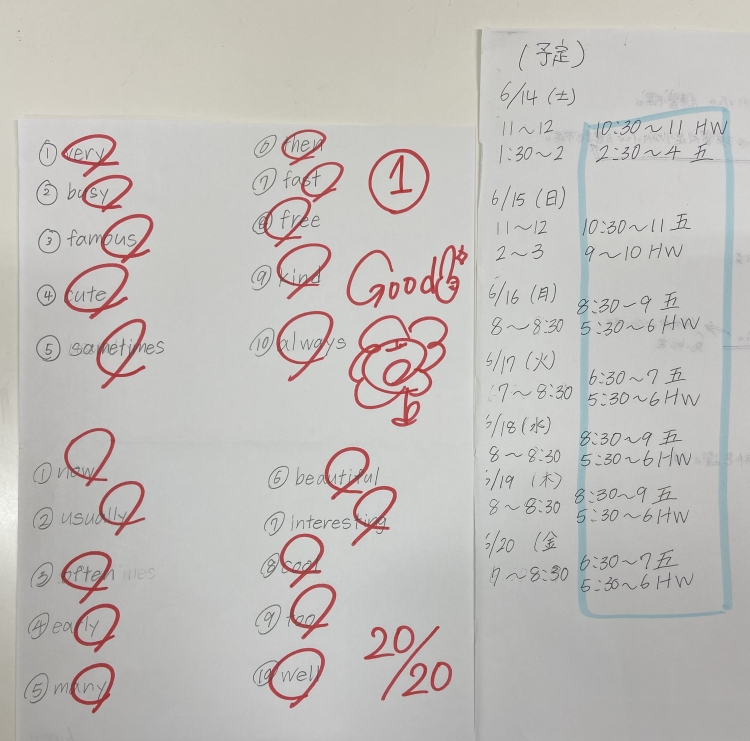 ① very
② busy
③ famous
④ cute
⑤ sometimes
⑥ then
⑦ fast
⑧ free
⑨ kind
⑩ always
①
Good
① new
② usually
③ often
④ early
⑤ many
⑥ beautiful
⑦ interesting
⑧ cool
⑨ too
⑩ well
20/20
(予定)
6/14 (土)
11~12 10:30~11 HW
1:30~2 2:30~4 五
6/15 (日)
11~12 10:30~11 五
2~3 9~10 HW
6/16 (月)
8:30~9 五
8~8:30 5:30~6 HW
6/17 (火)
6:30~7 五
7~8:30 5:30~6 HW
6/18 (水)
8:30~9 五
8~8:30 5:30~6 HW
6/19 (木)
8:30~9 五
8~8:30 5:30~6 HW
6/20 (金
6:30~7 五
7~8:30 5:30~6 HW